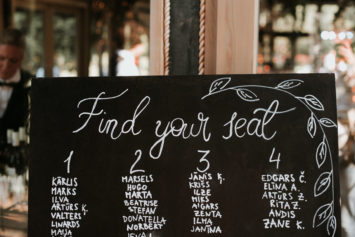 Find your seat
1
KĀRLIS
MARKS
ILVA
ARTŪRS Ķ.
VALTERS
LINARDS
MAIJA
2
MARSELS
HUGO
MARTA
BEATRISE
STEFAN
DONATELLA
NORBERT
3
JĀNIS Ķ.
KRIŠS
ILZE
MIKS
AIGARS
ZENTA
ILMA
JANĪNA
4
EDGARS Č.
ELĪNA A.
ARTŪRS Ž.
RITA Z.
ANDIS
ZANE K.